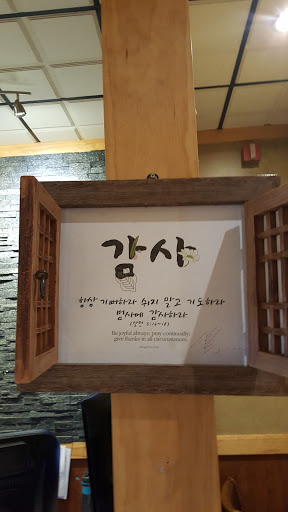 감사
항상 기뻐하라 쉬지 말고 기도하라
범사에 감사하라
(살전 5:16-18)
Be joyful always; pray continually;
give thanks in all circumstances.